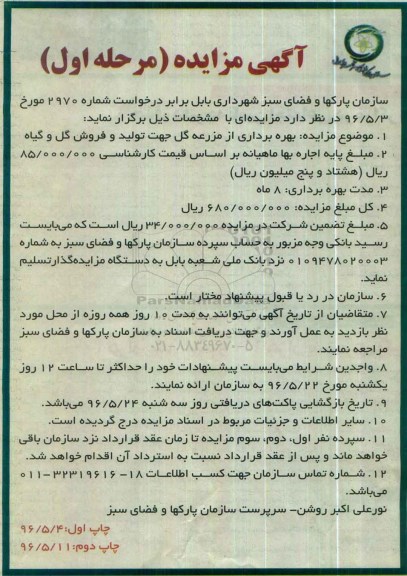 آگهی مزایده (مرحله اول)
سازمان پارکها و فضای سبز شهرداری بابل برابر درخواست شماره ۲۹۷۰ مورخ
۹۶/۵/۳ در نظر دارد مزایده‌ای با مشخصات ذیل برگزار نماید:
۱. موضوع مزایده: بهره برداری از مزرعه گل جهت تولید و فروش گل و گیاه
۲. مبلغ پایه اجاره بها ماهیانه بر اساس قیمت کارشناسی ۸۵/۰۰۰/۰۰۰
ریال (هشتاد و پنج میلیون ریال)
۳. مدت بهره برداری: ۸ ماه
۴. کل مبلغ مزایده: ۶۸۰/۰۰۰/۰۰۰ ریال
۵. مبلغ تضمین شرکت در مزایده ۳۴/۰۰۰/۰۰۰ ریال است که می‌بایست
رسید بانکی وجه مزبور به حساب سپرده سازمان پارکها و فضای سبز به شماره
۰۱۰۹۴۷۸۰۲۰۰۰۳ نزد بانک ملی شعبه بابل به دستگاه مزایده‌گذار تسلیم
نماید.
۶. سازمان در رد یا قبول پیشنهاد مختار است
۷. متقاضیان از تاریخ آگهی می‌توانند به مدت ۱۰ روز همه روزه از محل مورد
نظر بازدید به عمل آورند و جهت دریافت اسناد به سازمان پارکها و فضای سبز
مراجعه نمایند.
۰۲۱-۸۸۳۴۹۶۷۰-۵
۸. واجدین شرایط می‌بایست پیشنهادات خود را حداکثر تا ساعت ۱۲ روز
یکشنبه مورخ ۹۶/۵/۲۲ به سازمان ارائه نمایند.
۹. تاریخ بازگشایی پاکت‌های دریافتی روز سه شنبه ۹۶/۵/۲۴ می‌باشد.
۱۰. سایر اطلاعات و جزئیات مربوط در اسناد مزایده درج گردیده است.
۱۱. سپرده نفر اول، دوم، سوم مزایده تا زمان عقد قرارداد نزد سازمان باقی
خواهد ماند و پس از عقد قرارداد نسبت به استرداد آن اقدام خواهد شد.
۱۲. شماره تماس سازمان جهت کسب اطلاعات ۱۸-۳۲۳۱۹۶۱۶-۰۱۱
می‌باشد.
نورعلی اکبر روشن- سرپرست سازمان پارکها و فضای سبز
چاپ اول: ۹۶/۵/۴
چاپ دوم: ۹۶/۵/۱۱